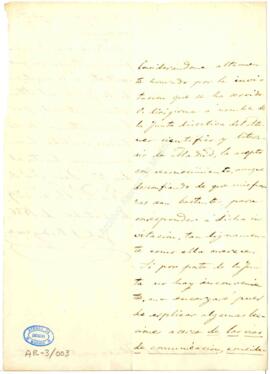 Considerandome altamen-
te honrado por la invi-
tacion que se ha servido
V. dirigirme á nombre de
la Junta directiva del Ate-
neo científico y litera-
rio de Madrid, la acepto
con reconocimiento, aunque
desconfiando de que mis fuer-
zas sean bastante para
corresponder á dicha in-
vitacion, tan dignamente
como ella merece.
Si por parte de la Jun-
ta no hay inconvenien-
te, me encargo pues
de esplicar algunas lec-
ciones acerca de las vias
de comunicacion, consider
AR-3/003